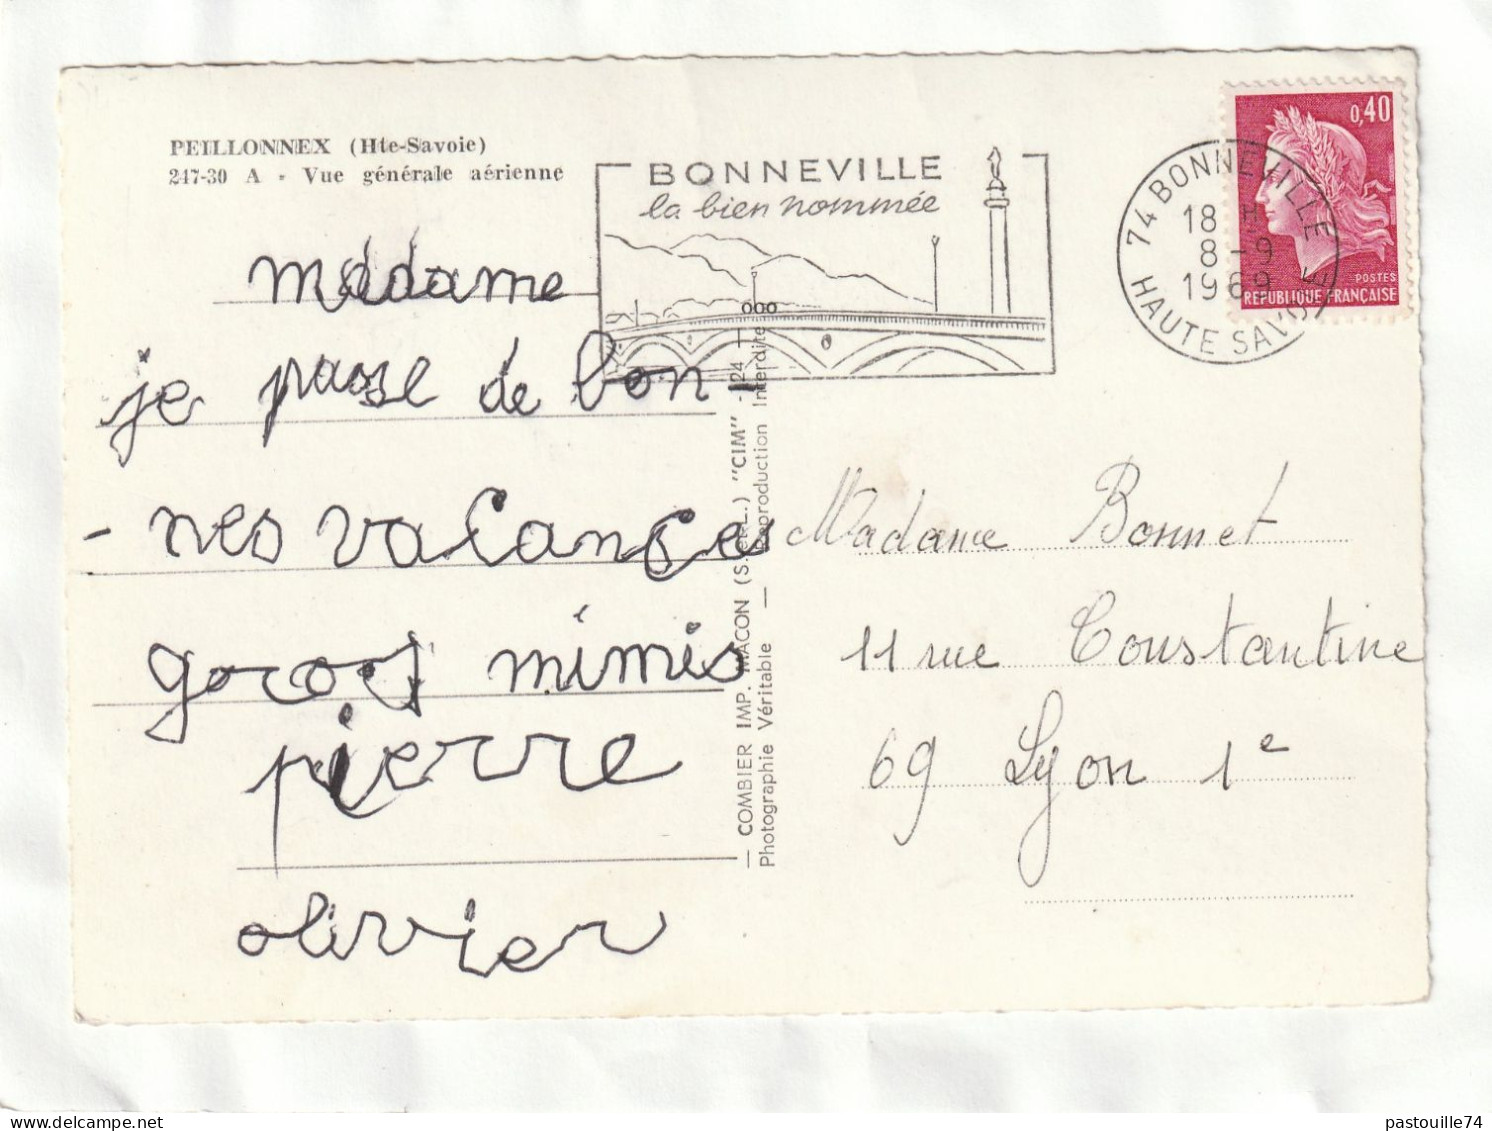 PEILLONNEX (Hte-Savoie)
247-30 A - Vue générale aérienne
BONNEVILLE
la bien nommée
74 BONNEVILLE
18 H
8-9
1969
HAUTE SAVOIE
0,40
POSTES
REPUBLIQUE FRANÇAISE
madame
je passe de bon
- nes vacances
gros mimis
pierre
olivier
— COMBIER IMP. MACON (S.-et-L.) "CIM" - 124 —
Photographie Véritable — Reproduction Interdite
Madame Bonnet
11 rue Constantine
69 Lyon 1e
pastouille74